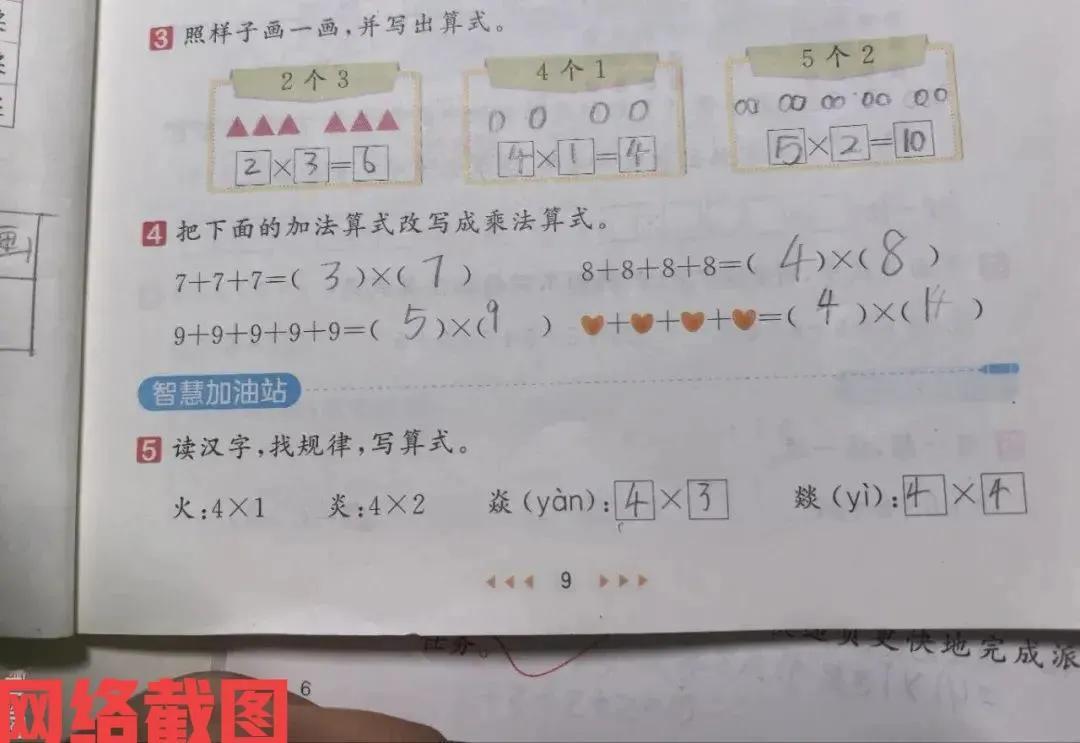 3 照样子画一画，并写出算式。
2个3 4个1 5个2
2×3=6 4×1=4 5×2=10
4 把下面的加法算式改写成乘法算式。
7+7+7=( 3 )×( 7 ) 8+8+8+8=( 4 )×( 8 )
9+9+9+9+9=( 5 )×( 9 ) +++=( 4 )×( )
智慧加油站
5 读汉字，找规律，写算式。
火:4×1 炎:4×2 焱(yàn):4×3 燚(yì):4×4
9
6
更快地完成派
网络截图